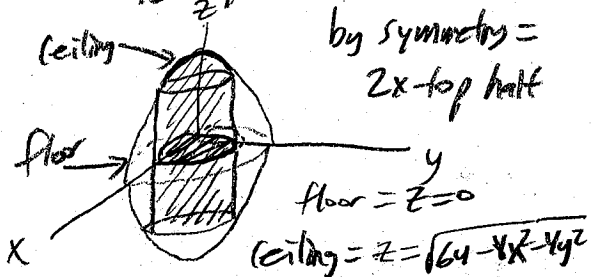 z
ceiling
by symmetry =
2x top half
floor
y
x
floor = z=0
ceiling = z = √64-4x²-4y²